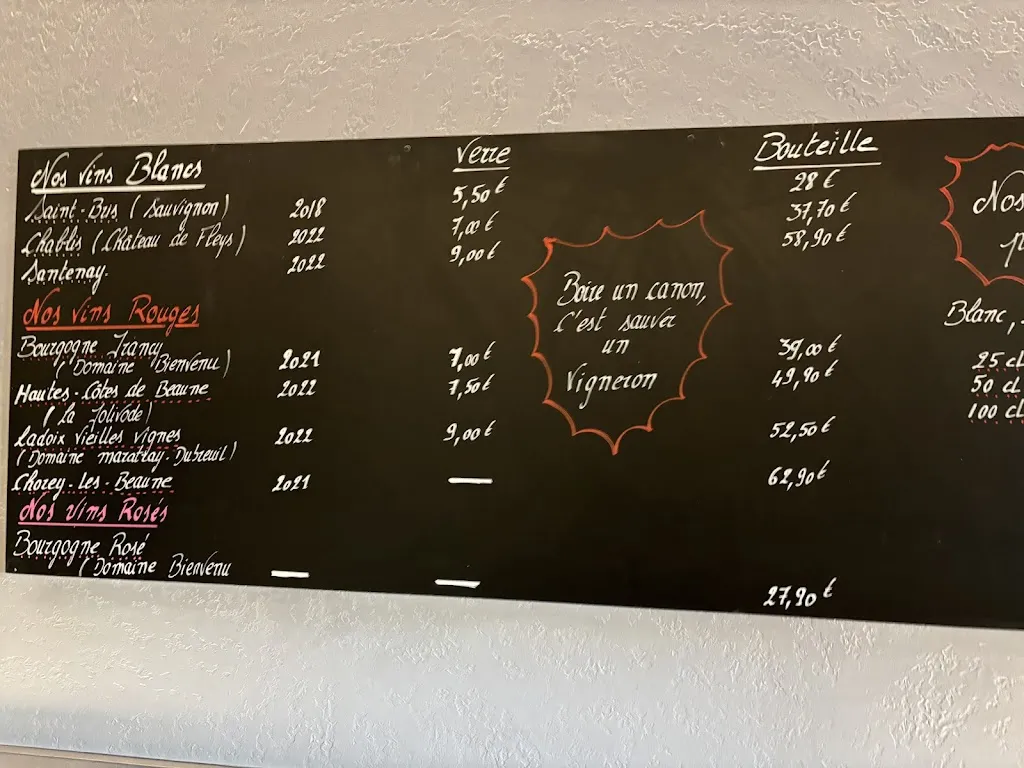 Nos vins Blancs Verre Bouteille
Saint-Bris (Sauvignon) 2018 5,50 € 28 €
Chablis (Château de Fleys) 2022 7,00 € 37,70 €
Santenay 2022 9,00 € 58,90 €
Nos vins Rouges
Bourgogne Irancy
(Domaine Bienvenu) 2021 7,00 € 39,00 €
Hautes-Côtes de Beaune 2022 7,50 € 49,90 €
(La Jolivode)
Ladoix vieilles vignes 2022 9,00 € 52,50 €
(Domaine maratray-Dubreuil)
Chorey-les-Beaune 2021 — 62,90 €
Nos vins Rosés
Bourgogne Rosé
(Domaine Bienvenu — — 27,90 €
Boire un canon,
C'est sauver
un
Vigneron
Nos
Blanc,
25 cl
50 cl
100 cl